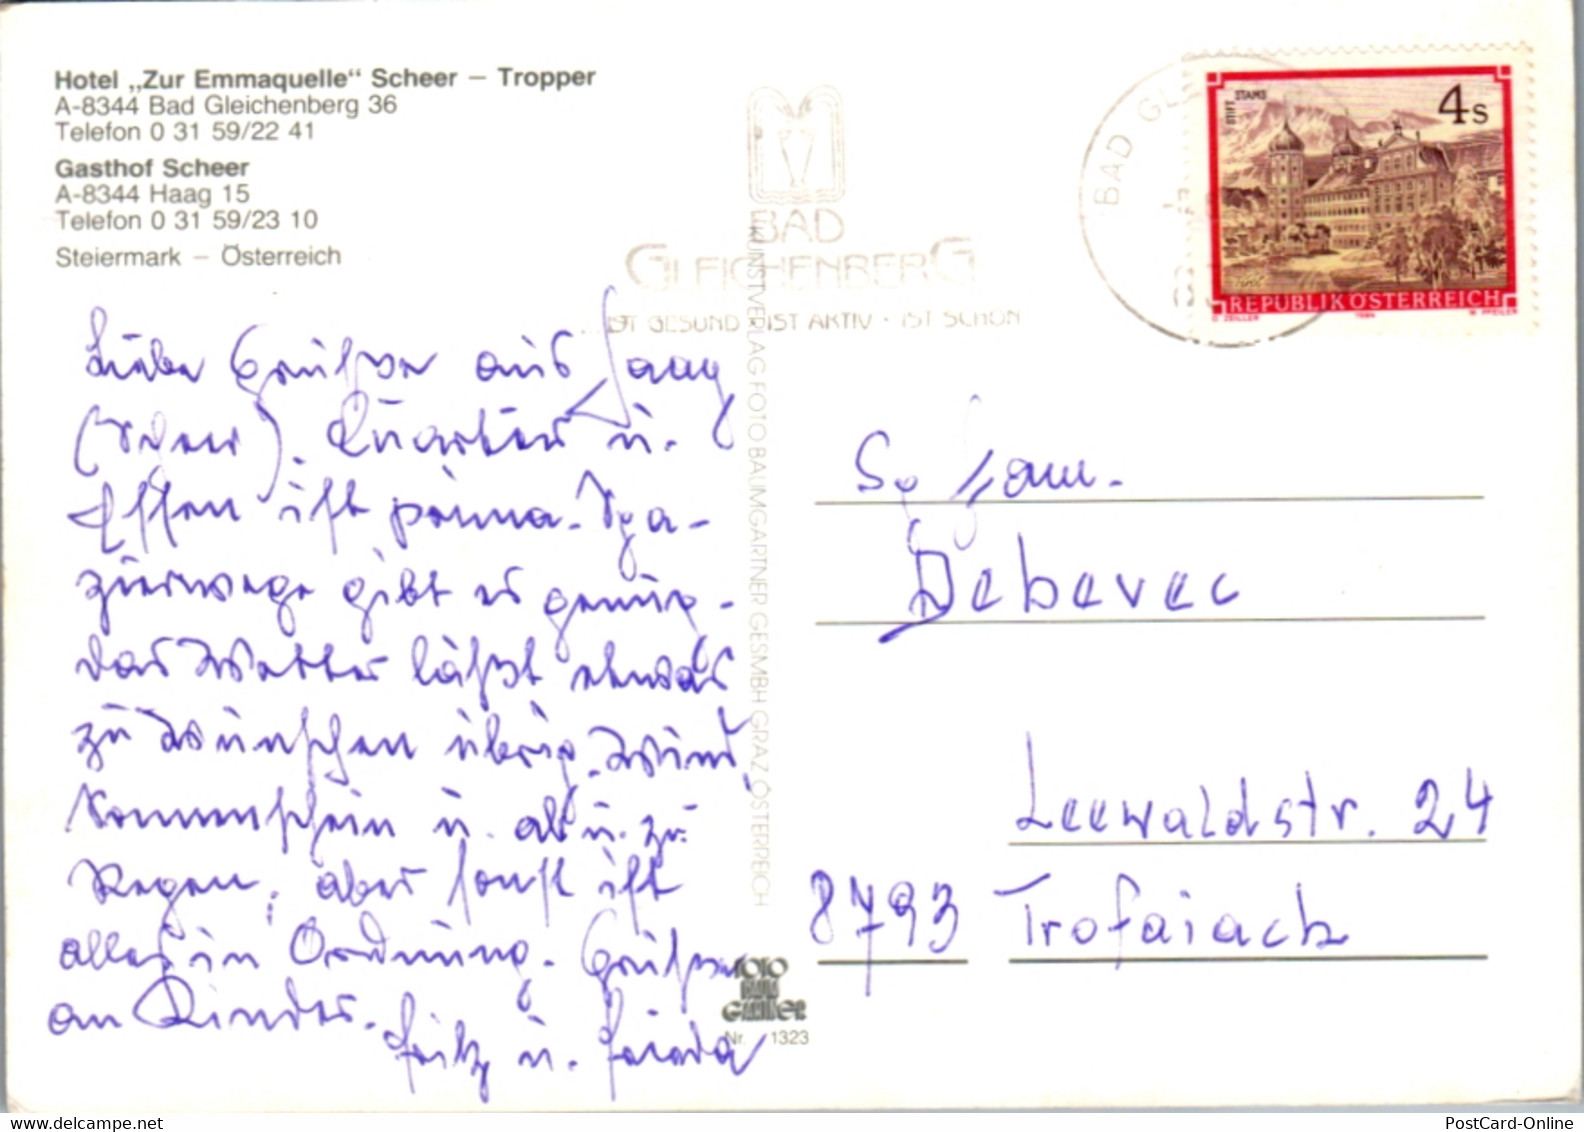 Hotel „Zur Emmaquelle“ Scheer – Tropper
A-8344 Bad Gleichenberg 36
Telefon 0 31 59/22 41
Gasthof Scheer
A-8344 Haag 15
Telefon 0 31 59/23 10
Steiermark – Österreich
BAD
GLEICHENBERG
...IST GESUND · IST AKTIV · IST SCHÖN
BAD GL
STIFT STAMS
4 S
REPUBLIK ÖSTERREICH
O. ZEILLER 1984 W. PFEILER
Liebe Grüße aus Haag
(Scheer). Quartier u.
Essen ist prima. Spa-
zierwege gibt es genug.
das Wetter läßt etwas
zu wünschen übrig. Wind,
Sonnenschein u. ab u. zu
Regen, aber sonst ist
alles in Ordnung. Grüße
an Kinder.
Fritz u. Frieda
KUNSTVERLAG FOTO BAUMGARTNER GESMBH GRAZ ÖSTERREICH
FOTO
BAUM
GARTNER
Nr. 1323
Fam.
Debevec
Leewaldstr. 24
8793 Trofaiach
PostCard-Online